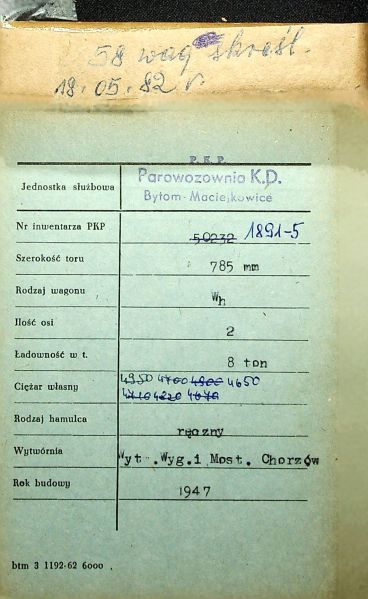 58 wag skreśl.
18.05.82 r
P.K.P.
Jednostka służbowa Parowozownia K.D.
Bytom-Maciejkowice
Nr inwentarza PKP 50232 1891-5
Szerokość toru 785 mm
Rodzaj wagonu Wh
Ilość osi 2
Ładowność w t. 8 ton
Ciężar własny 4950 4700 4900 4650
4710 4220 4670
Rodzaj hamulca ręczny
Wytwórnia Wyt.Wyg.i Most. Chorzów
Rok budowy 1947
btm 3 1192-62 6000